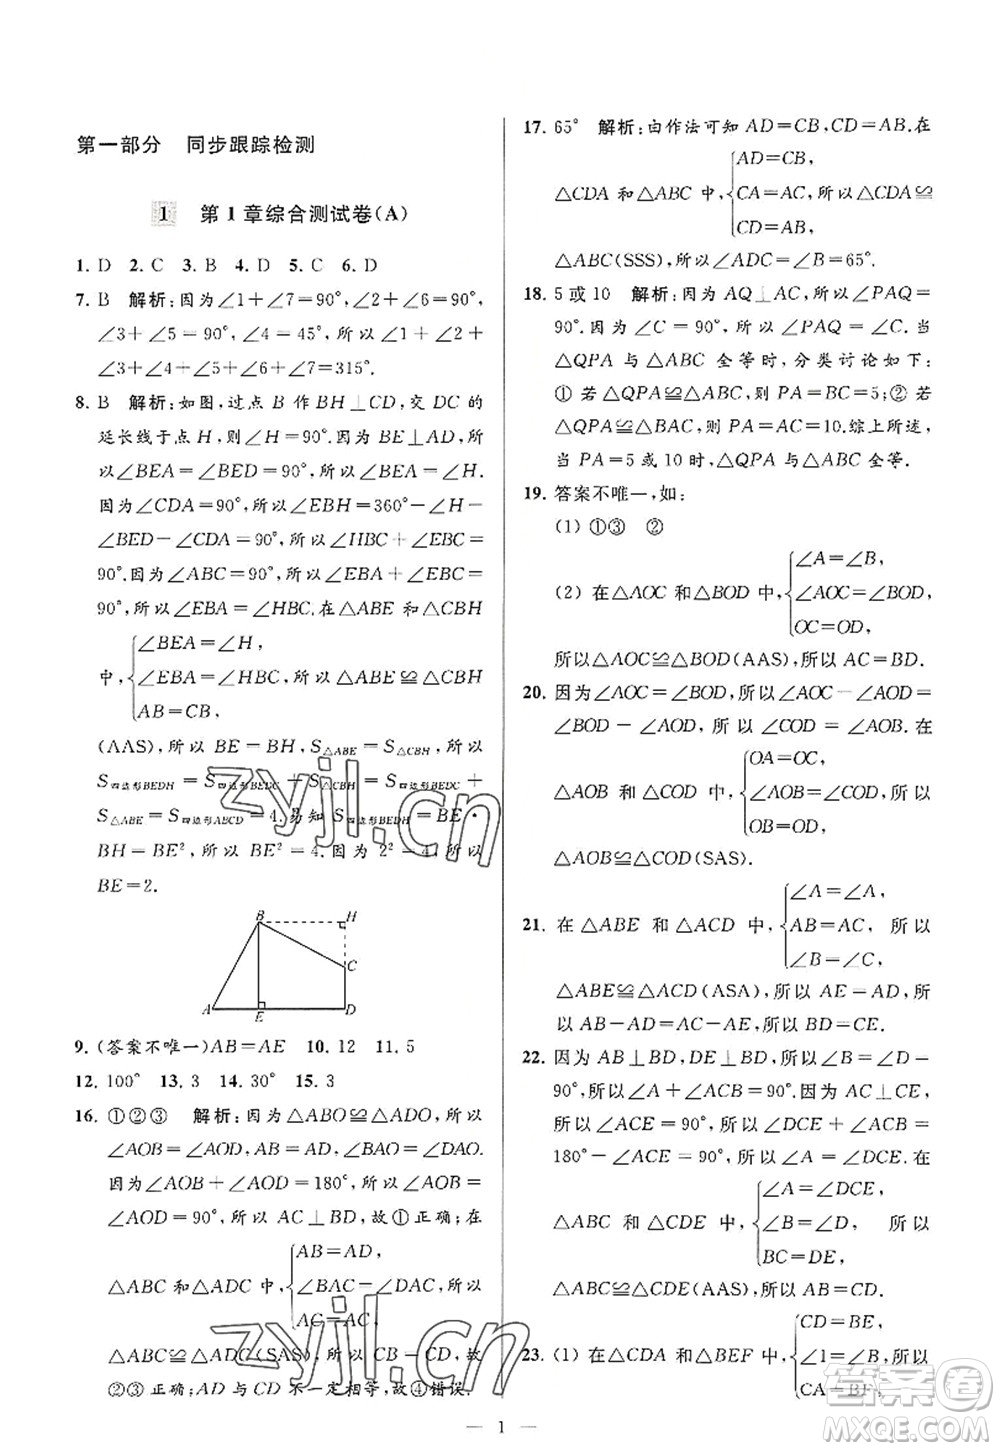 第一部分 同步跟踪检测
1 第1章综合测试卷(A)
1. D 2. C 3. B 4. D 5. C 6. D
7. B 解析:因为∠1+∠7=90°,∠2+∠6=90°,
∠3+∠5=90°,∠4=45°,所以∠1+∠2+
∠3+∠4+∠5+∠6+∠7=315°.
8. B 解析:如图,过点 B 作 BH⊥CD,交 DC 的
延长线于点 H,则∠H=90°.因为 BE⊥AD,所
以∠BEA=∠BED=90°,所以∠BEA=∠H.
因为∠CDA=90°,所以∠EBH=360°-∠H-
∠BED-∠CDA=90°,所以∠HBC+∠EBC=
90°.因为∠ABC=90°,所以∠EBA+∠EBC=
90°,所以∠EBA=∠HBC.在△ABE 和△CBH
∠BEA=∠H,
中,∠EBA=∠HBC,所以△ABE≌△CBH
AB=CB,
(AAS),所以 BE=BH,S△ABE=S△CBH,所以
S四边形BEDH=S四边形BEDC+S△CBH=S四边形BEDC+
S△ABE=S四边形ABCD=4.易知 S四边形BEDH=BE·
BH=BE²,所以 BE²=4.因为 2²=4,所以
BE=2.
B H
C
A E D
9. (答案不唯一)AB=AE 10. 12 11. 5
12. 100° 13. 3 14. 30° 15. 3
16. ①②③ 解析:因为△ABO≌△ADO,所以
∠AOB=∠AOD,AB=AD,∠BAO=∠DAO.
因为∠AOB+∠AOD=180°,所以∠AOB=
∠AOD=90°,所以 AC⊥BD,故①正确;在
AB=AD,
△ABC 和△ADC 中,∠BAC=∠DAC,所以
AC=AC,
△ABC≌△ADC(SAS),所以 CB=CD,故
②③正确;AD与CD不一定相等,故④错误.
17. 65° 解析:由作法可知 AD=CB,CD=AB.在
AD=CB,
△CDA 和△ABC 中,CA=AC,所以△CDA≌
CD=AB,
△ABC(SSS),所以∠D=∠B=65°.
18. 5 或 10 解析:因为 AQ⊥AC,所以∠PAQ=
90°.因为∠C=90°,所以∠PAQ=∠C.当
△QPA 与△ABC 全等时,分类讨论如下:
①若△QPA≌△ABC,则PA=BC=5;②若
△QPA≌△BAC,则 PA=AC=10.综上所述,
当 PA=5 或 10 时,△QPA 与△ABC 全等.
19. 答案不唯一,如:
(1) ①③ ②
∠A=∠B,
(2) 在△AOC 和△BOD 中,∠AOC=∠BOD,
OC=OD,
所以△AOC≌△BOD(AAS),所以 AC=BD.
20. 因为∠AOC=∠BOD,所以∠AOC-∠AOD=
∠BOD-∠AOD,所以∠COD=∠AOB.在
OA=OC,
△AOB 和△COD 中,∠AOB=∠COD,所以
OB=OD,
△AOB≌△COD(SAS).
∠A=∠A,
21. 在△ABE 和△ACD 中,AB=AC, 所以
∠B=∠C,
△ABE≌△ACD(ASA),所以 AE=AD,所
以 AB-AD=AC-AE,所以 BD=CE.
22. 因为 AB⊥BD,DE⊥BD,所以∠B=∠D=
90°,所以∠A+∠ACB=90°.因为 AC⊥CE,
所以∠ACE=90°,所以∠ACB+∠DCE=
180°-∠ACE=90°,所以∠A=∠DCE.在
∠A=∠DCE,
△ABC 和△CDE 中,∠B=∠D, 所以
BC=DE,
△ABC≌△CDE(AAS),所以 AB=CD.
CD=BE,
23. (1) 在△CDA 和△BEF 中,∠1=∠B,所以
CA=BF,
1
zyjl.cn
zyjl.cn
答案卷
MXQE.COM